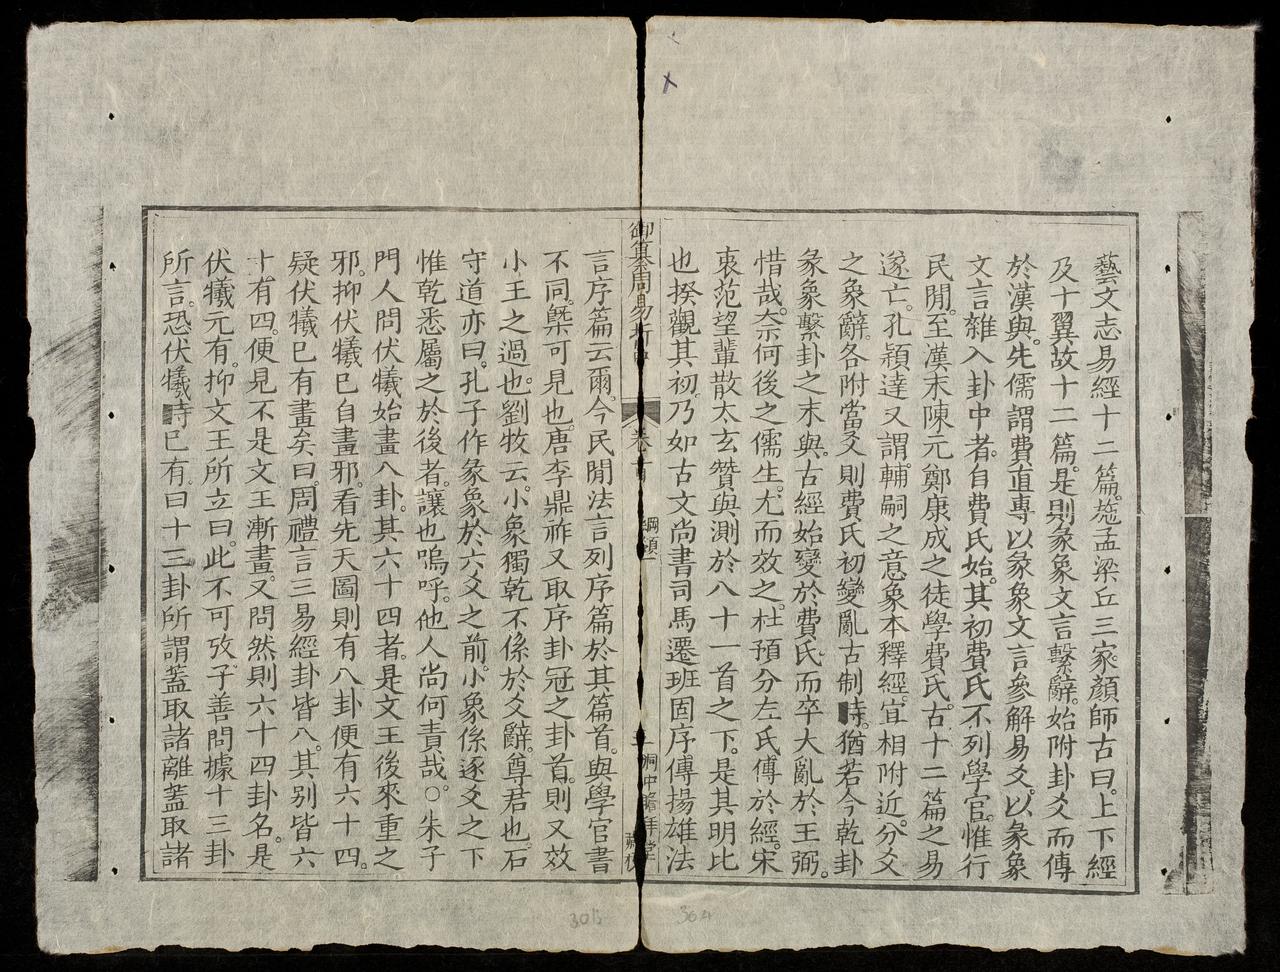 藝文志易經十二篇。施孟梁丘三家。顏師古曰。上下經
及十翼故十二篇。是則彖象文言繫辭。始附卦爻而傳
於漢與。先儒謂費直專以彖象文言參解易爻。以彖象
文言雜入卦中者。自費氏始。其初費氏不列學官。惟行
民閒。至漢末陳元鄭康成之徒學費氏。古十二篇之易
遂亡。孔穎達又謂。輔嗣之意象本釋經。宜相附近。分爻
之象辭。各附當爻則費氏初變亂古制時。猶若今乾卦
彖象繫卦之末與。古經始變於費氏。而卒大亂於王弼。
惜哉。奈何後之儒生。尤而效之。杜預分左氏傳於經。宋
衷范望輩散太玄贊與測於八十一首之下。是其明比
也揆觀其初。乃如古文尚書司馬遷班固序傳揚雄法
御纂周易折中 卷首 綱領一
言序篇云爾。今民閒法言列序篇於其篇首。與學官書
不同。槩可見也。唐李鼎祚又取序卦冠之卦首。則又效
小王之過也。劉牧云。小象獨乾不係於爻辭。尊君也。石
守道亦曰。孔子作彖象於六爻之前。小象係逐爻之下
惟乾悉屬之於後者。讓也嗚呼。他人尚何責哉。○朱子
門人問伏犧始畫八卦。其六十四者。是文王後來重之
邪。抑伏犧已自畫邪。看先天圖則有八卦便有六十四。
疑伏犧已有畫矣。曰。周禮言三易經卦皆八。其別皆六
十有四。便見不是文王漸畫。又問然則六十四卦名。是
伏犧元有。抑文王所立曰。此不可攷。子善問據十三卦
所言。恐伏犧時已有。曰十三卦所謂蓋取諸離蓋取諸
305
304